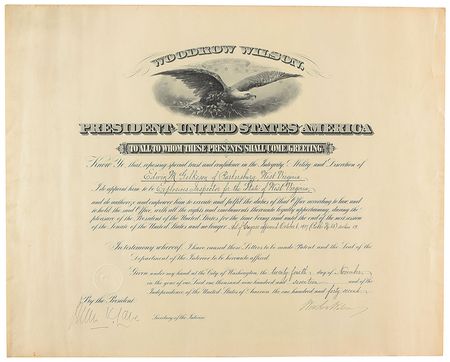 WOODROW WILSON,
PRESIDENT OF THE UNITED STATES OF AMERICA
TO ALL TO WHOM THESE PRESENTS SHALL COME, GREETING:
Know Ye that, reposing special trust and confidence in the Integrity, Ability and Discretion of
Edwin M. of Parkersburg, West Virginia,
I do appoint him to be Explosives Inspector for the State of West Virginia,
and do authorize and empower him to execute and fulfil the duties of that Office according to law, and
to hold the said Office with all the rights and emoluments thereunto legally appertaining, during the
pleasure of the President of the United States for the time being and until the end of the next session
of the Senate of the United States and no longer. Act of Congress approved October 6, 1917
In testimony whereof, I have caused these Letters to be made Patent and the Seal of the
Department of the Interior to be hereunto affixed.
Given under my hand at the City of Washington, the twenty fourth day of November
in the year of our Lord one thousand nine hundred and seventeen and of the
Independence of the United States of America the one hundred and forty second.
By the President:
Woodrow Wilson
Secretary of the Interior.